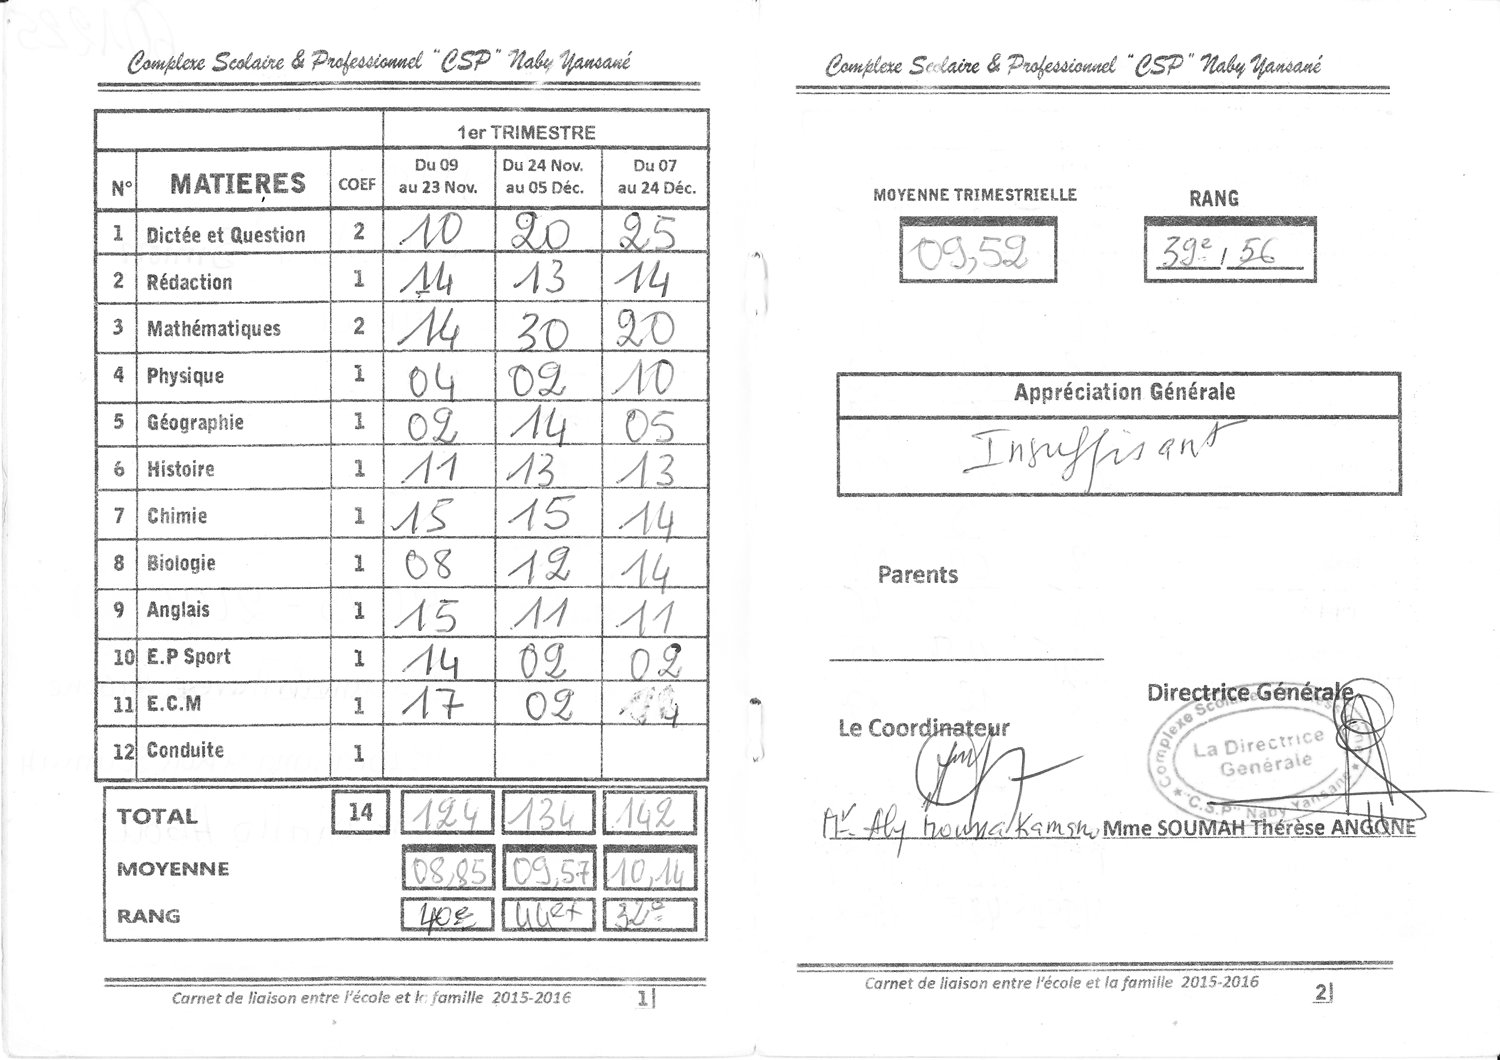 Complexe Scolaire & Professionnel "CSP" Naby Yansané
1er TRIMESTRE
N° MATIERES COEF Du 09 au 23 Nov. Du 24 Nov. au 05 Déc. Du 07 au 24 Déc.
1 Dictée et Question 2 10 20 25
2 Rédaction 1 14 13 14
3 Mathématiques 2 14 30 20
4 Physique 1 04 02 10
5 Géographie 1 02 14 05
6 Histoire 1 11 13 13
7 Chimie 1 15 15 14
8 Biologie 1 08 12 14
9 Anglais 1 15 11 11
10 E.P Sport 1 14 02 02
11 E.C.M 1 17 02
12 Conduite 1
TOTAL 14 124 134 142
MOYENNE 08,85 09,57 10,14
RANG 40e 44ex 32e
Carnet de liaison entre l'école et la famille 2015-2016 1|
Complexe Scolaire & Professionnel "CSP" Naby Yansané
MOYENNE TRIMESTRIELLE RANG
09,52 39e / 56
Appréciation Générale
Insuffisant
Parents
Directrice Générale
Le Coordinateur
Complexe Scolaire
La Directrice
Générale
"C.S.P" Naby Yansané
Mr Aly Moussa Kamano Mme SOUMAH Thérèse ANGONE
Carnet de liaison entre l'école et la famille 2015-2016
2|